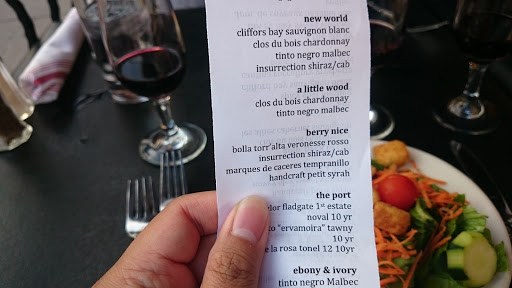 new world
cliffors bay sauvignon blanc
clos du bois chardonnay
tinto negro malbec
insurrection shiraz/cab
a little wood
clos du bois chardonnay
tinto negro malbec
berry nice
bolla torr'alta veronesse rosso
insurrection shiraz/cab
marques de caceres tempranillo
handcraft petit syrah
the port
lor fladgate 1st estate
noval 10 yr
to "ervamoira" tawny
10 yr
e la rosa tonel 12 10yr
ebony & ivory
tinto negro Malbec